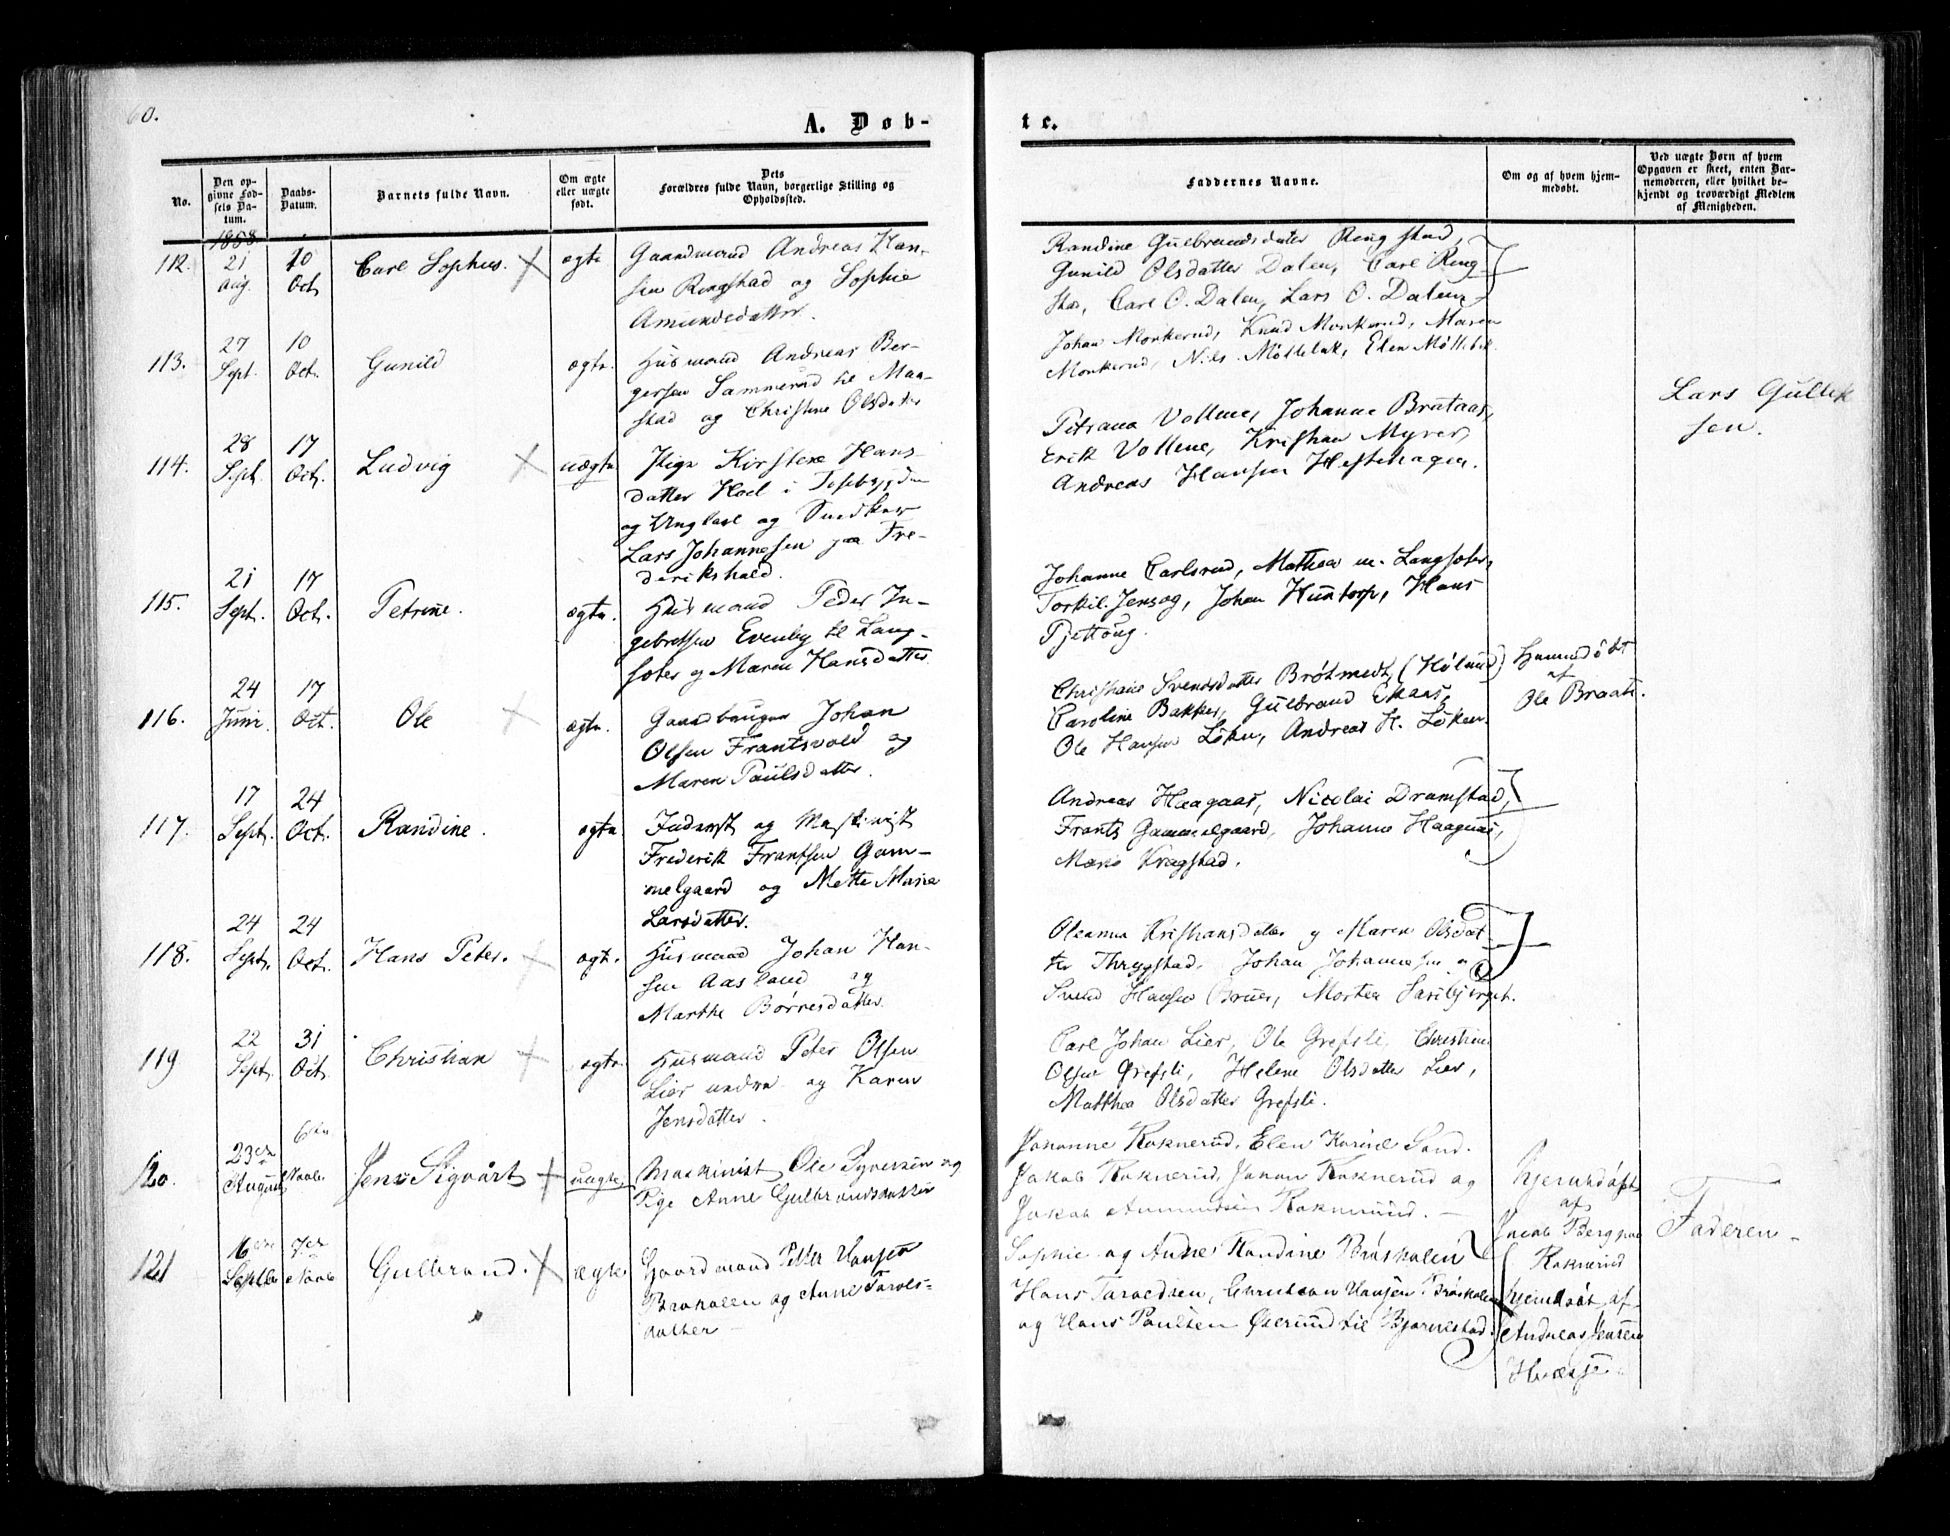 60.
A. Døb-
te.
No.
Den op-
givne Fød-
sels Da-
tum.
Daabs-
Datum.
Barnets fulde Navn.
Om ægte
eller uægte
født.
Dets
Forældres fulde Navn, borgerlige Stilling og
Opholdssted.
Faddernes Navne.
Om og af hvem hjem-
medøbt.
Ved uægte Børn af hvem
Opgaven er skeet, enten Bar-
nemoderen, eller hvilket be-
kjendt og troværdigt Medlem
af Menigheden.
1858
112. 21 Aug. 10 Oct Carl Sophus. ægte
Gaardmand Andreas Han-
sen Ringstad og Sophie
Amundsdatter.
Randine Gulbrandsdatter Ringstad,
Gunild Olsdatter Dalen, Carl Ring-
stad, Carl O. Dalen, Lars O. Dalen
113. 27 Sept. 10 Oct. Gunild ægte.
Husmand Andreas Ber-
gersen Sammerud til Maa-
stad og Christine Olsdatter
Johan Monkerud, Knud Monkerud, Maren
Monkerud, Nils
114. 28 Sept. 17 Oct. Ludvig uægte
Pige Kirstene Hans-
datter Hoel i
og Ungkarl og Snedker
Lars Johannesen paa Fre-
derikshald.
Petrana Vollene, Johanne Braataas,
Erik Vollene, Kristian Myrer,
Andreas Hansen Hestehagen.
Lars Gullik
sen.
115. 21 Sept. 17 Oct. Petrine. ægte.
Husmand Peder In-
gebretsen Evenby til Lang-
seter og Maren Hansdatter
Johanne Carlsrud, Mathea m. Langseter,
Torkil Jensøg, Johan Huntorp, Hans
116. 24 Juni. 17 Oct. Ole ægte.
Gaardbruger Johan
Olsen Frantsvold og
Maren Paulsdatter.
Christiane Svendsdatter (Høland)
Caroline Bakker, Gulbrand
Ole Hansen Løken, Andreas H. Løken.
Hjemdøbt
af
Ole Braate.
117. 17 Sept. 24 Oct. Randine. ægte
Inderst og Maskinist
Frederik Frantsen Gam-
melgaard og Mette Marie
Larsdatter.
Andreas Haagaas, Nicolai Dramstad,
Frants Gammelgaard, Johanne Haagaas,
Maria Kragstad.
118. 24 Sept. 24 Oct. Hans Peter. ægt.
Husmand Johan Han-
sen Aasland og
Marthe Børresdatter.
Oleanna Kristiansdatter og Maren Olsdat-
ter Thrygstad, Johan Johannesen og
Svend Hansen Bruer, Morten
119 22 Sept. 31 Oct. Christian ægte.
Husmand Peter Olsen
Lier nedre og Karen
Jensdatter.
Carl Johan Lier, Ole Grefsli, Christian
Olsen Grefsli, Helene Olsdatter Lier,
Matthea Olsdatter Grefsli.
120. 23de August 6te Jens Sigvart uægte,
Maskinist Ole Syversen og
Pige Anne Gulbrandsdatter
Johanne Koknerud, Elen Karine Sand.
Jakob Koknerud, Johan Koknerud og
Jakob Koknerud. -
hjemdøbt
af
Jacob
Koknerud
Faderen -
121 16de 7de Gulbrand. ægte.
Gaardmand Petter Hansen
og Anne
datter
Sophie og Anne Randine
Hans Hansen
og Hans Paulsen til Bjørnestad.
hjemdøbt af
Andreas Jensen